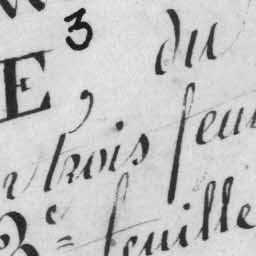 3
E, du
trois feui
3e = feuille